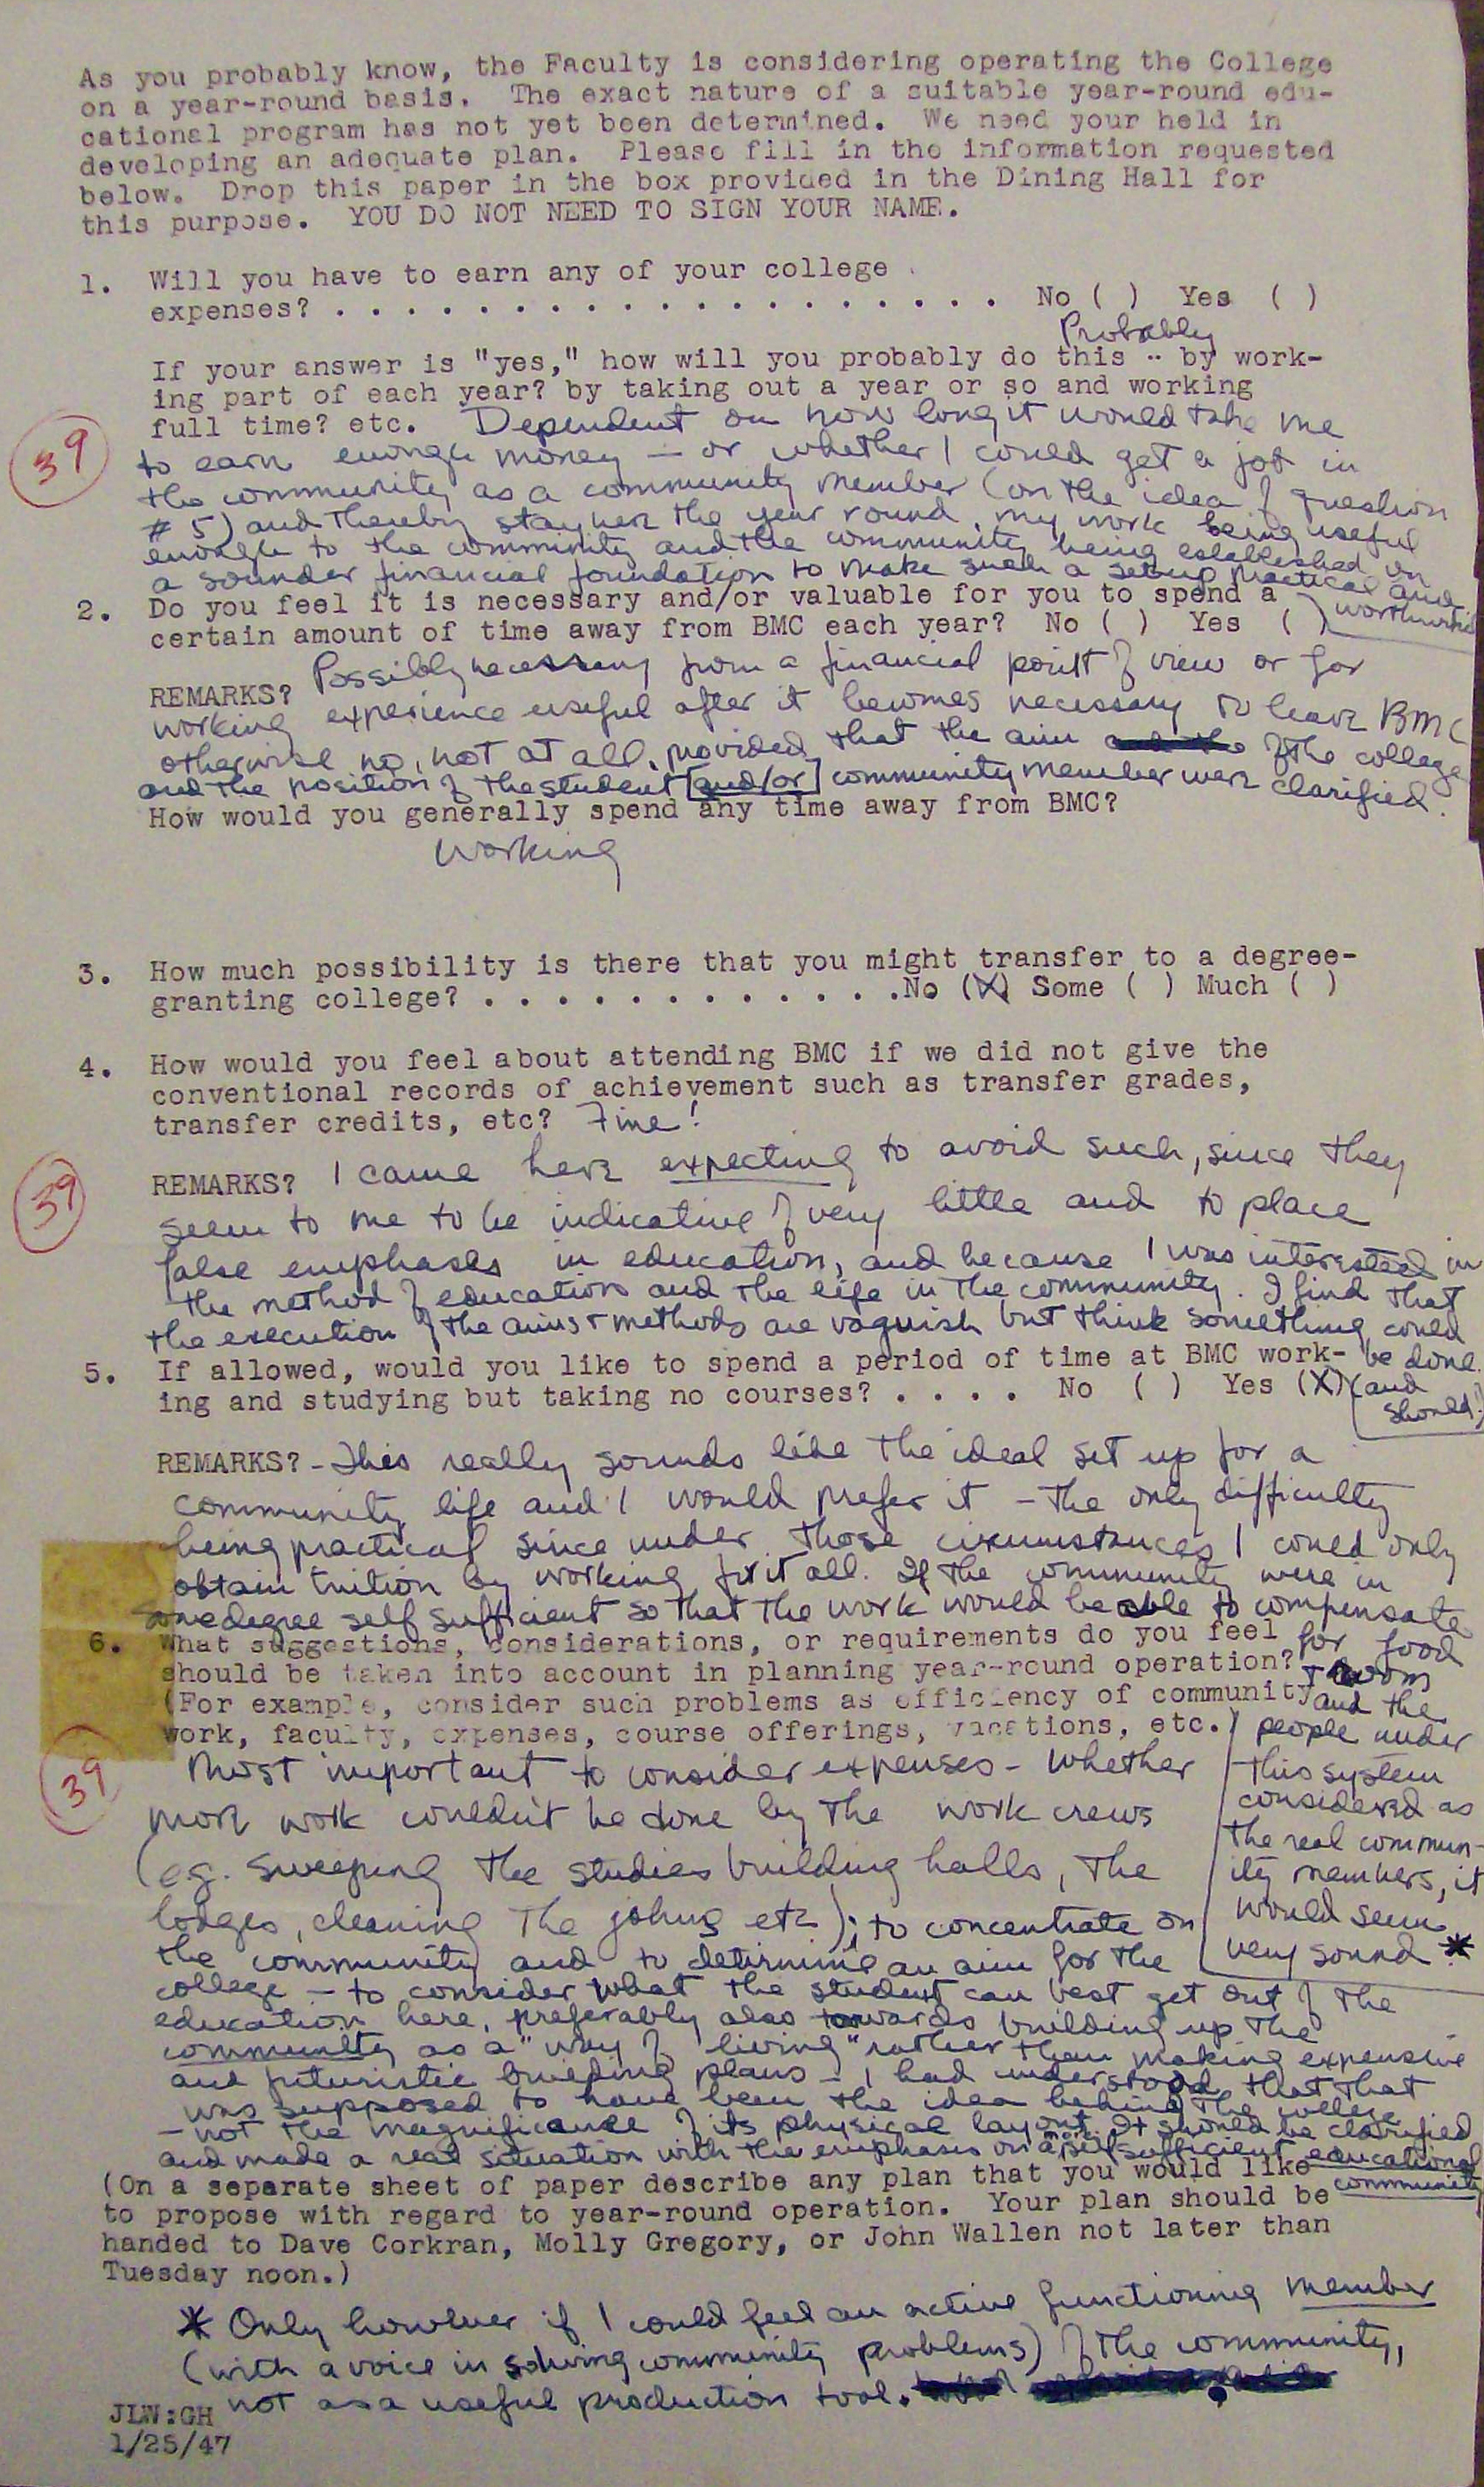 As you probably know, the Faculty is considering operating the College
on a year-round basis. The exact nature of a suitable year-round edu-
cational program has not yet been determined. We need your held in
developing an adequate plan. Please fill in the information requested
below. Drop this paper in the box provided in the Dining Hall for
this purpose. YOU DO NOT NEED TO SIGN YOUR NAME.
1. Will you have to earn any of your college
expenses? . . . . . . . . . . . . . . . . . . . . No ( ) Yes ( )
Probably
If your answer is "yes," how will you probably do this -- by work-
ing part of each year? by taking out a year or so and working
full time? etc. Dependent on how long it would take me
39
to earn enough money – or whether I could get a job in
the community as a community member (on the idea of question
# 5) and thereby stay here the year round, my work being useful
enough to the community and the community being established on
a sounder financial foundation to make such a setup practical and
worthwhile
2. Do you feel it is necessary and/or valuable for you to spend a
certain amount of time away from BMC each year? No ( ) Yes ( )
REMARKS? Possibly necessary from a financial point of view or for
working experience useful after it becomes necessary to leave BMC
otherwise no, not at all, provided that the aim of the college
and the position of the student [and/or] community member were clarified.
How would you generally spend any time away from BMC?
Working
3. How much possibility is there that you might transfer to a degree-
granting college? . . . . . . . . . . . . . .No (X) Some ( ) Much ( )
4. How would you feel about attending BMC if we did not give the
conventional records of achievement such as transfer grades,
transfer credits, etc? Fine!
39
REMARKS? I came here expecting to avoid such, since they
seem to me to be indicative of very little and to place
false emphases in education, and because I was interested in
the method of education and the life in the community. I find that
the execution of the aims + methods are vaguish but think something could
be done
(and should!)
5. If allowed, would you like to spend a period of time at BMC work-
ing and studying but taking no courses? . . . . No ( ) Yes (X)
REMARKS? - This really sounds like the ideal set up for a
community life and I would prefer it – the only difficulty
being practical since under those circumstances I could only
obtain tuition by working for it all. If the community were in
some degree self sufficient so that the work would be able to compensate
for food
+ room
and the
people under
this system
considered as
the real commun-
ity members, it
would seem
very sound. *
6. What suggestions, considerations, or requirements do you feel
should be taken into account in planning year-round operation?
(For example, consider such problems as efficiency of community
work, faculty, expenses, course offerings, vacations, etc.)
39
Most important to consider expenses - whether
more work couldn't be done by the work crews
(e.g. sweeping the studies building halls, the
lodges, cleaning the johns etc); to concentrate on
the community and to determine an aim for the
college – to consider what the student can best get out of the
education here, preferably also towards building up the
community as a "way of living" rather than making expensive
and futuristic building plans – I had understood that that
was supposed to have been the idea behind the college
– not the magnificence of its physical layout. It should be clarified
and made a real situation with the emphasis on a self sufficient educational
community
(On a separate sheet of paper describe any plan that you would like
to propose with regard to year-round operation. Your plan should be
handed to Dave Corkran, Molly Gregory, or John Wallen not later than
Tuesday noon.)
* Only however if I could feel an active functioning member
(with a voice in solving community problems) of the community,
not as a useful production tool.
JLW:GH
1/25/47